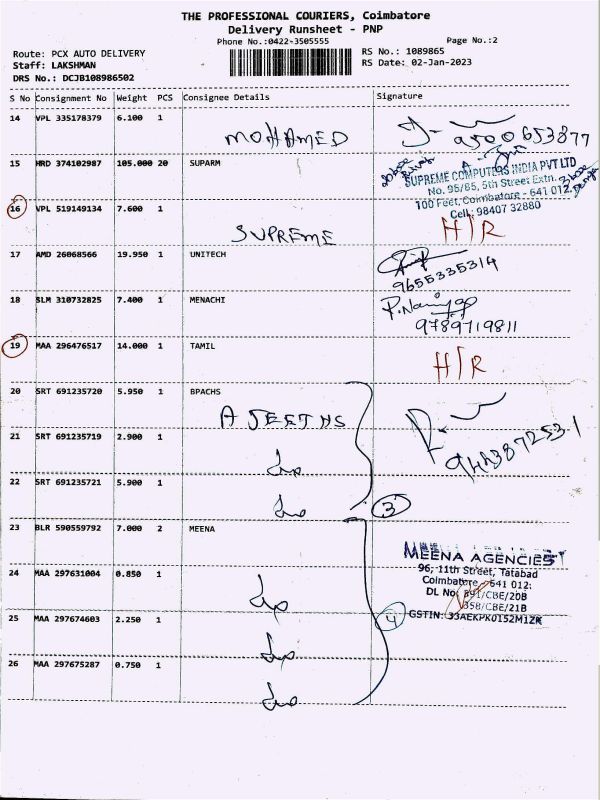 THE PROFESSIONAL COURIERS, Coimbatore
Delivery Runsheet - PNP
Phone No.:0422-3505555
Page No.:2
Route: PCX AUTO DELIVERY
RS No.: 1089865
Staff: LAKSHMAN
RS Date: 02-Jan-2023
DRS No.: DCJB108986502
S No Consignment No Weight PCS Consignee Details Signature
14 VPL 335178379 6.100 1
MOHAMED 9500653877
15 HRD 374102987 105.000 20 SUPARM
SUPREME COMPUTERS INDIA PVT LTD
No. 95/85, 5th Street Extn.
100 Feet, Coimbatore - 641 012.
Cell: 98407 32880
16 VPL 519149134 7.600 1
SUPREME H/R
17 AMD 26068566 19.950 1 UNITECH
9655335314
18 SLM 310732825 7.400 1 MENACHI
9789719811
19 MAA 296476517 14.000 1 TAMIL
H/R
20 SRT 691235720 5.950 1 BPACHS
AJEETHS
21 SRT 691235719 2.900 1
22 SRT 691235721 5.900 1
3
23 BLR 590559792 7.000 2 MEENA
MEENA AGENCIES
96, 11th Street, Tatabad
Coimbatore - 641 012.
24 MAA 297631004 0.850 1
DL No: 391/CBE/20B
358/CBE/21B
25 MAA 297674603 2.250 1
4
GSTIN: 33AEKPK0152M1ZR
26 MAA 297675287 0.750 1